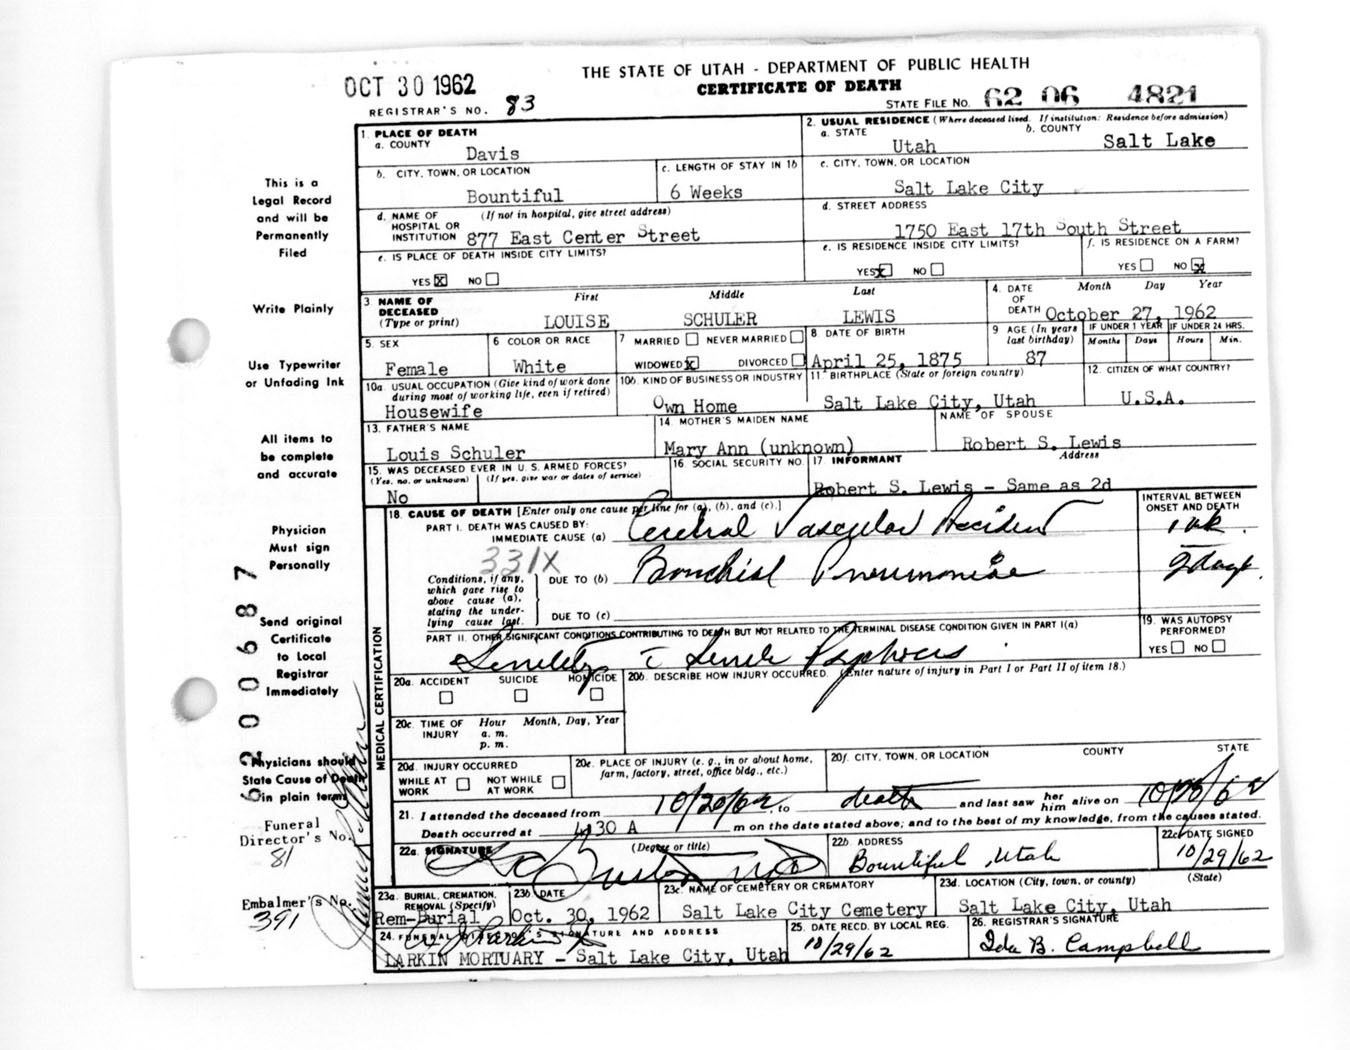 OCT 30 1962
THE STATE OF UTAH - DEPARTMENT OF PUBLIC HEALTH
CERTIFICATE OF DEATH
REGISTRAR'S NO. 83
STATE FILE NO. 62 06 4821
1. PLACE OF DEATH
a. COUNTY
Davis
2. USUAL RESIDENCE (Where deceased lived. If institution: Residence before admission)
a. STATE
Utah
b. COUNTY
Salt Lake
b. CITY, TOWN, OR LOCATION
Bountiful
c. LENGTH OF STAY IN 1b
6 Weeks
c. CITY, TOWN, OR LOCATION
Salt Lake City
d. NAME OF HOSPITAL OR INSTITUTION
(If not in hospital, give street address)
877 East Center Street
d. STREET ADDRESS
1750 East 17th South Street
e. IS PLACE OF DEATH INSIDE CITY LIMITS?
YES X NO
e. IS RESIDENCE INSIDE CITY LIMITS?
YES X NO
f. IS RESIDENCE ON A FARM?
YES NO X
3 NAME OF DECEASED
(Type or print)
First Middle Last
LOUISE SCHULER LEWIS
4. DATE OF DEATH
Month Day Year
October 27, 1962
5. SEX
Female
6 COLOR OR RACE
White
7 MARRIED NEVER MARRIED
WIDOWED X DIVORCED
8 DATE OF BIRTH
April 25, 1875
9 AGE (In years last birthday)
87
IF UNDER 1 YEAR
Months Days
IF UNDER 24 HRS.
Hours Min.
10a. USUAL OCCUPATION (Give kind of work done during most of working life, even if retired)
Housewife
10b. KIND OF BUSINESS OR INDUSTRY
Own Home
11. BIRTHPLACE (State or foreign country)
Salt Lake City, Utah
12. CITIZEN OF WHAT COUNTRY?
U.S.A.
13. FATHER'S NAME
Louis Schuler
14. MOTHER'S MAIDEN NAME
Mary Ann (unknown)
NAME OF SPOUSE
Robert S. Lewis
15. WAS DECEASED EVER IN U. S. ARMED FORCES?
(Yes, no, or unknown) (If yes, give war or dates of service)
No
16. SOCIAL SECURITY NO.
17 INFORMANT
Address
Robert S. Lewis - Same as 2d
18. CAUSE OF DEATH [Enter only one cause per line for (a), (b), and (c).]
INTERVAL BETWEEN ONSET AND DEATH
PART I. DEATH WAS CAUSED BY:
IMMEDIATE CAUSE (a) Cerebral Vascular Accident 1 wk.
331X
Conditions, if any, which gave rise to above cause (a), stating the underlying cause last.
DUE TO (b) Bronchial Pneumoniae 2 days.
DUE TO (c)
PART II. OTHER SIGNIFICANT CONDITIONS CONTRIBUTING TO DEATH BUT NOT RELATED TO THE TERMINAL DISEASE CONDITION GIVEN IN PART I(a)
Senility c̄ Senile Psychosis
19. WAS AUTOPSY PERFORMED?
YES NO
20a. ACCIDENT SUICIDE HOMICIDE
20b. DESCRIBE HOW INJURY OCCURRED. (Enter nature of injury in Part I or Part II of item 18.)
20c. TIME OF INJURY
Hour Month, Day, Year
a. m.
p. m.
20d. INJURY OCCURRED
WHILE AT WORK NOT WHILE AT WORK
20e. PLACE OF INJURY (e. g., in or about home, farm, factory, street, office bldg., etc.)
20f. CITY, TOWN, OR LOCATION COUNTY STATE
21. I attended the deceased from 10/20/62, to death and last saw her him alive on 10/26/62
Death occurred at 4:30 A m on the date stated above; and to the best of my knowledge, from the causes stated.
22a. SIGNATURE (Degree or title)
22b. ADDRESS
Bountiful, Utah
22c. DATE SIGNED
10/29/62
23a. BURIAL, CREMATION, REMOVAL (Specify)
Rem-Burial
23b. DATE
Oct. 30, 1962
23c. NAME OF CEMETERY OR CREMATORY
Salt Lake City Cemetery
23d. LOCATION (City, town, or county) (State)
Salt Lake City, Utah
24. FUNERAL DIRECTOR'S SIGNATURE AND ADDRESS
LARKIN MORTUARY - Salt Lake City, Utah
25. DATE RECD. BY LOCAL REG.
10/29/62
26. REGISTRAR'S SIGNATURE
Ida B. Campbell
MEDICAL CERTIFICATION
This is a
Legal Record
and will be
Permanently
Filed
Write Plainly
Use Typewriter
or Unfading Ink
All items to
be complete
and accurate
Physician
Must sign
Personally
Send original
Certificate
to Local
Registrar
Immediately
Physicians should
State Cause of Death
in plain terms
Funeral
Director's No.
81
Embalmer's No.
391
6200687